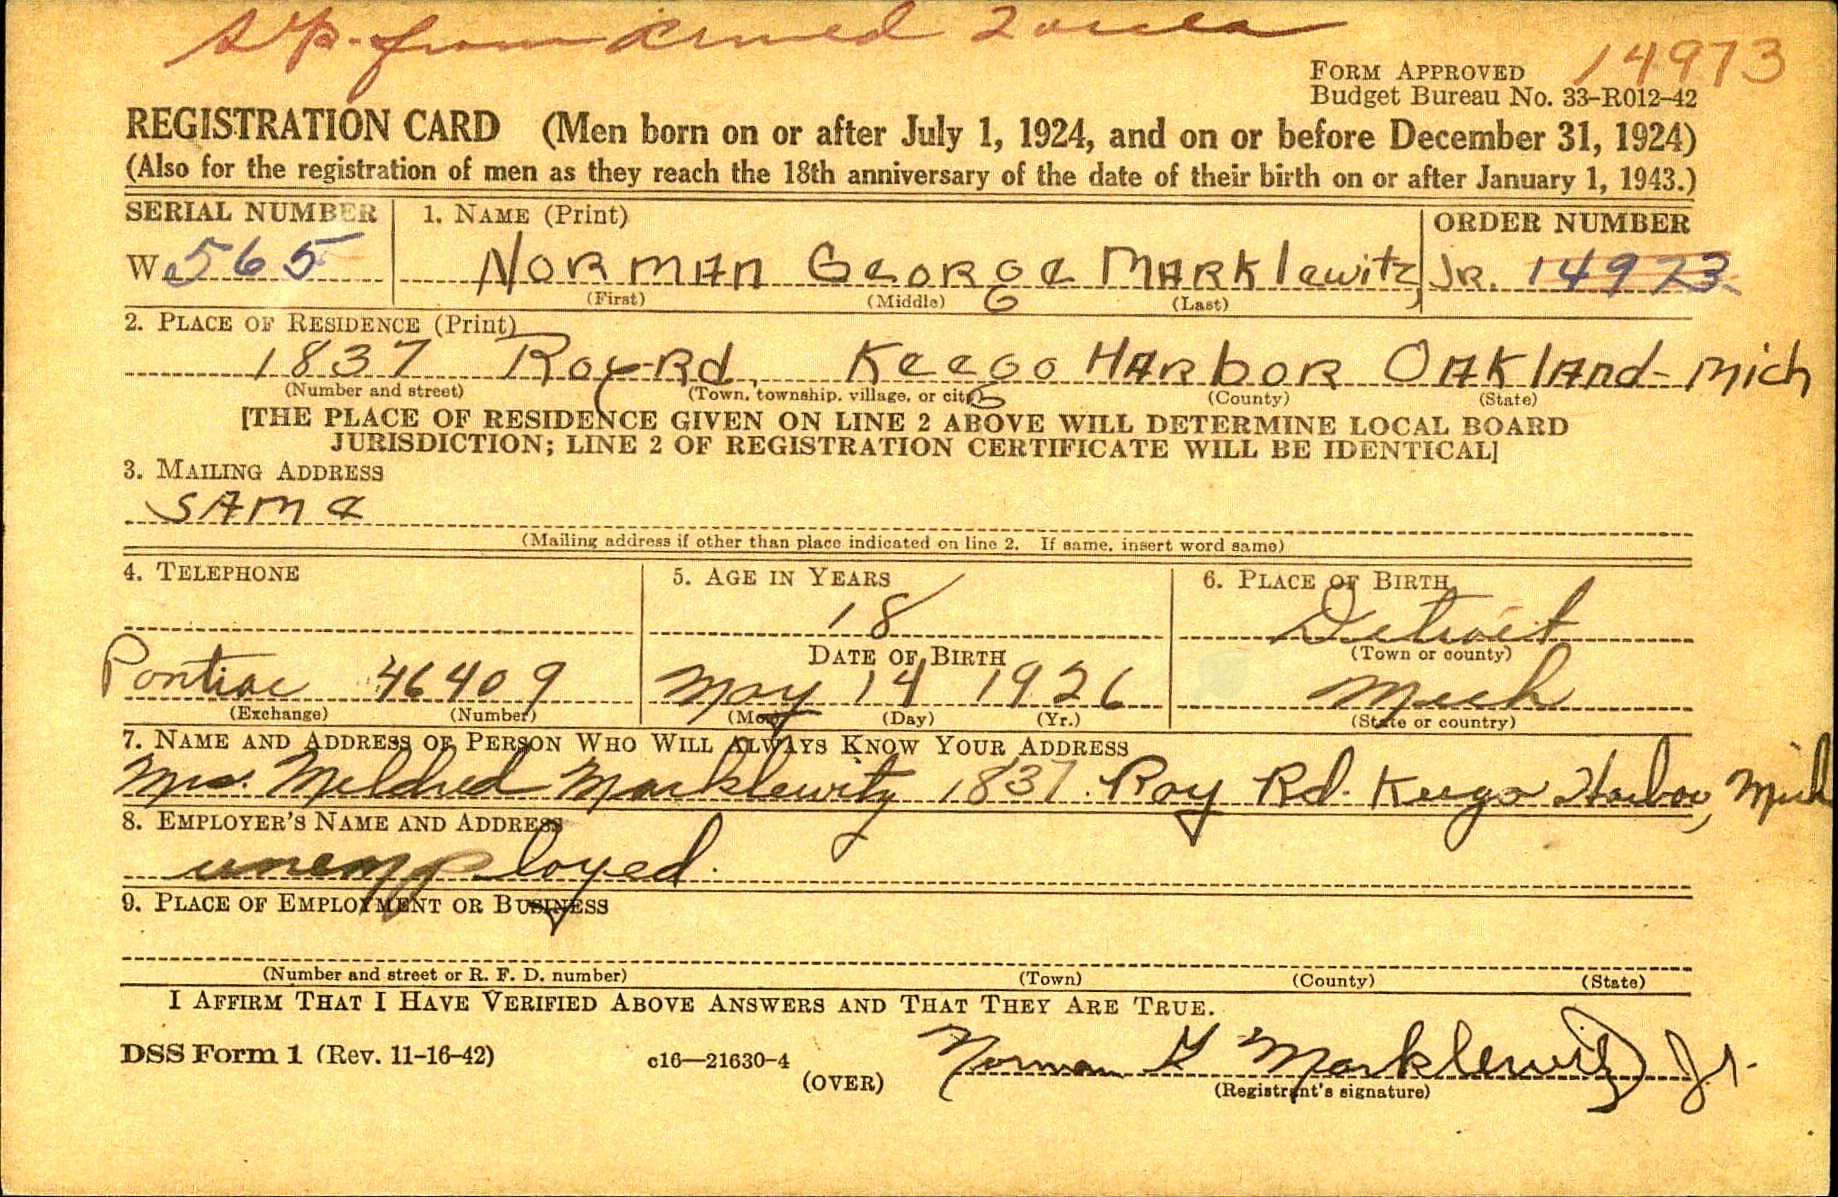 Sep. from Armed Forces
14973
FORM APPROVED
Budget Bureau No. 33-R012-42
REGISTRATION CARD (Men born on or after July 1, 1924, and on or before December 31, 1924)
(Also for the registration of men as they reach the 18th anniversary of the date of their birth on or after January 1, 1943.)
SERIAL NUMBER 1. NAME (Print) ORDER NUMBER
W 565 NORMAN GEORGE MARKlewitz, JR. 14973
(First) (Middle) (Last)
2. PLACE OF RESIDENCE (Print)
1837 Roy Rd. Keego HARbOR OAKlAnd - Mich
(Number and street) (Town, township, village, or city) (County) (State)
[THE PLACE OF RESIDENCE GIVEN ON LINE 2 ABOVE WILL DETERMINE LOCAL BOARD
JURISDICTION; LINE 2 OF REGISTRATION CERTIFICATE WILL BE IDENTICAL]
3. MAILING ADDRESS
SAME
(Mailing address if other than place indicated on line 2. If same, insert word same)
4. TELEPHONE 5. AGE IN YEARS 6. PLACE OF BIRTH
18 Detroit
DATE OF BIRTH (Town or county)
Pontiac 46409 May 14 1926 Mich
(Exchange) (Number) (Mo.) (Day) (Yr.) (State or country)
7. NAME AND ADDRESS OF PERSON WHO WILL ALWAYS KNOW YOUR ADDRESS
Mrs. Mildred Marklewitz 1837 Roy Rd. Keego Harbor, Mich
8. EMPLOYER'S NAME AND ADDRESS
unemployed.
9. PLACE OF EMPLOYMENT OR BUSINESS
(Number and street or R. F. D. number) (Town) (County) (State)
I AFFIRM THAT I HAVE VERIFIED ABOVE ANSWERS AND THAT THEY ARE TRUE.
DSS Form 1 (Rev. 11-16-42) c16—21630-4 (OVER) Norman G Marklewitz Jr.
(Registrant's signature)